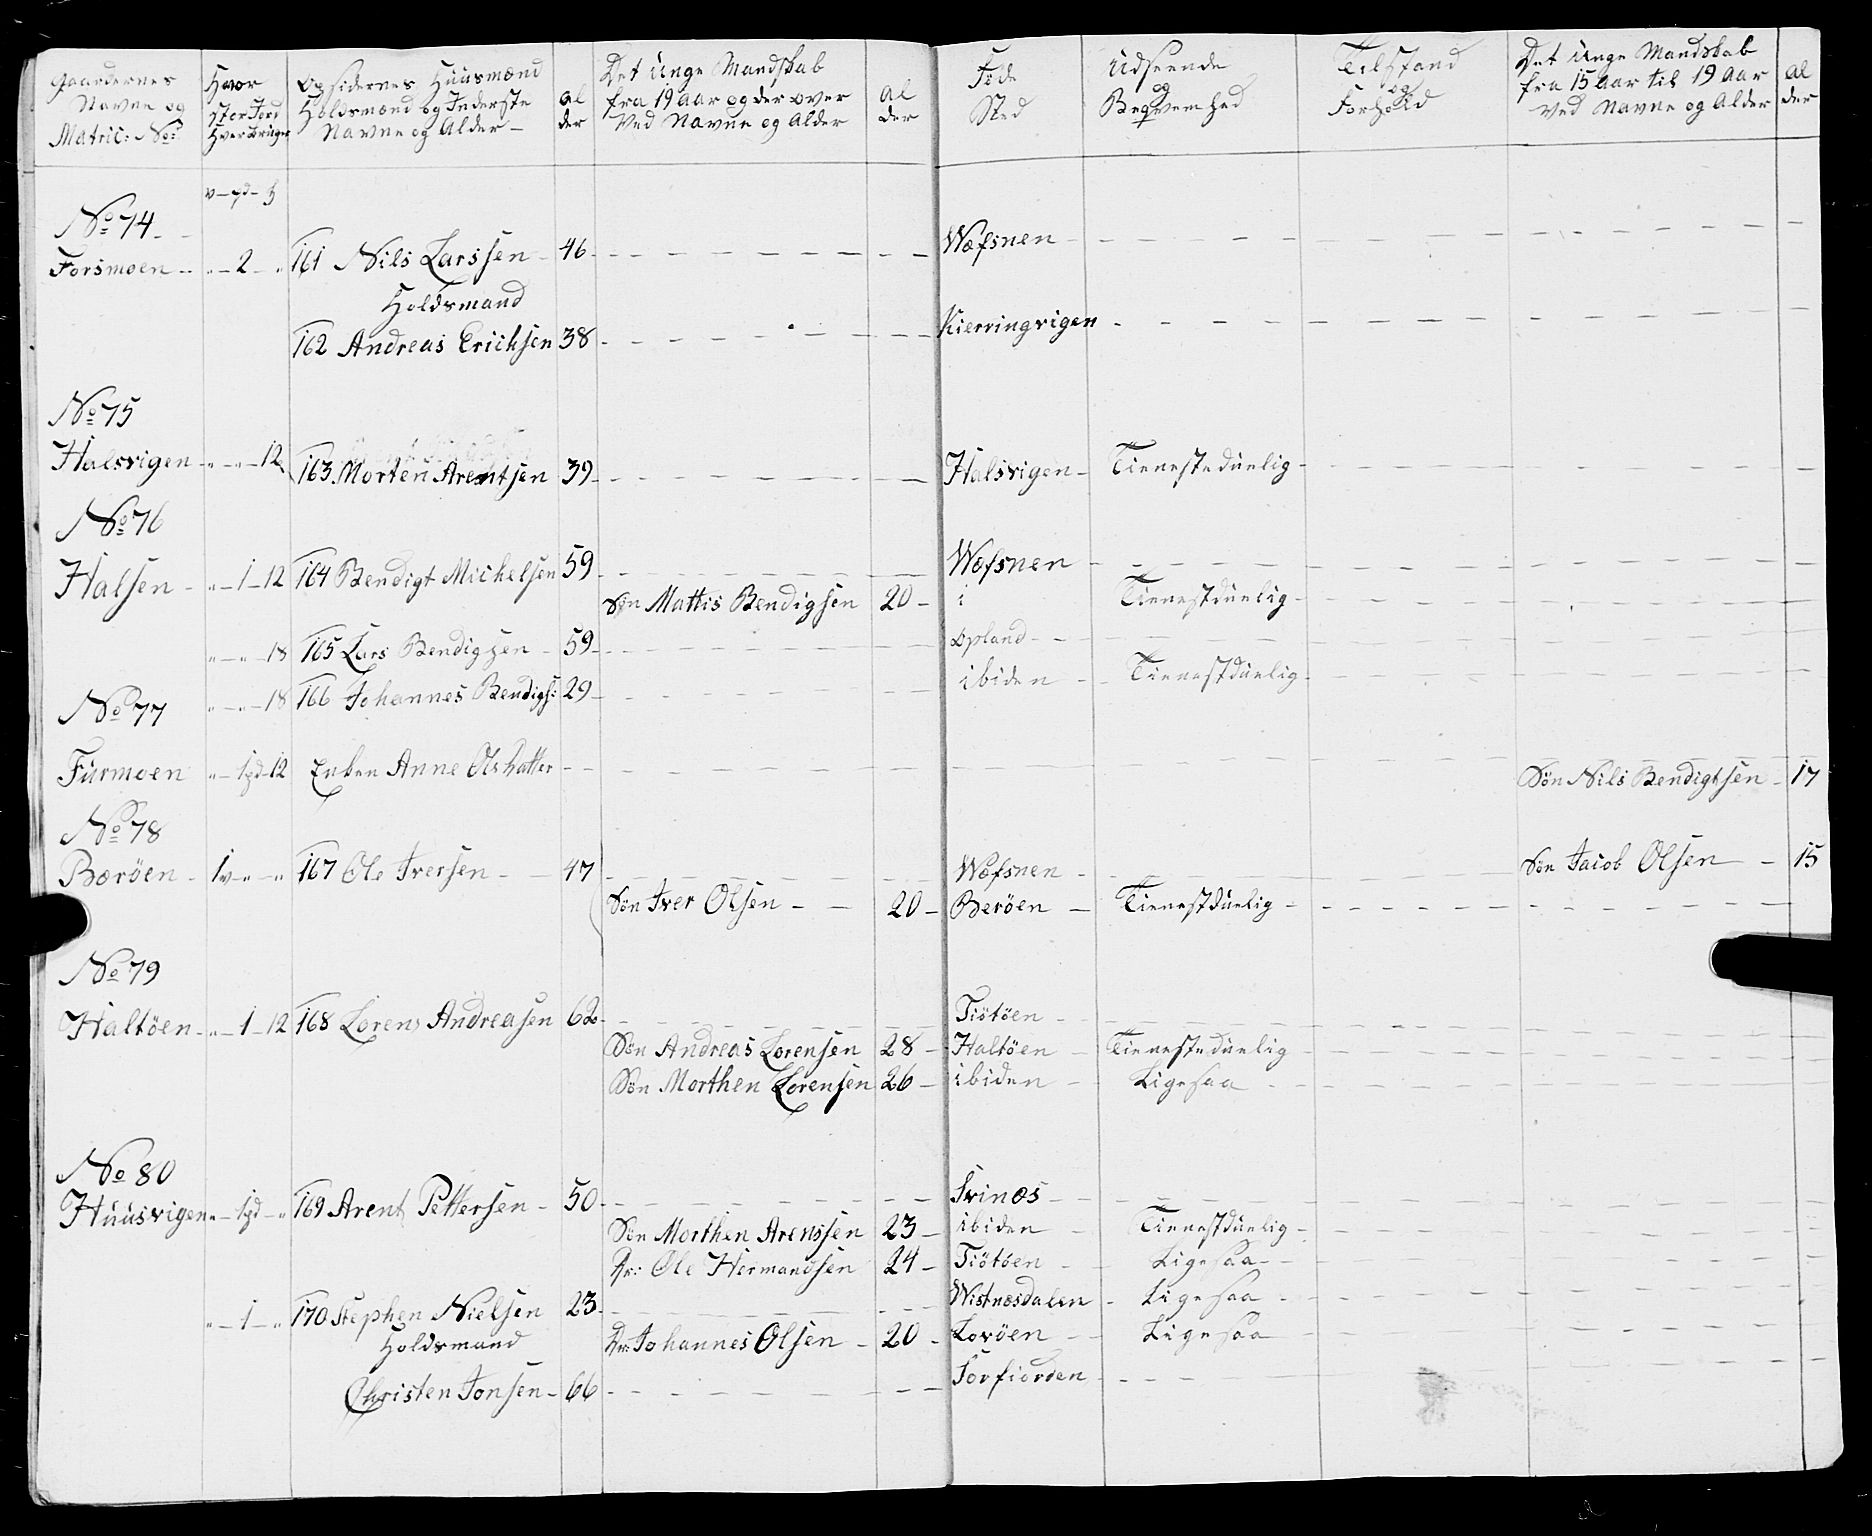 Gaardernes Navne og Matric: No:
Hvor stor Jord Hver bruger
Opsidernes Huusmænd Holdsmænd og Inderste Navne og Alder
al der
Det unge Mandskab fra 19 Aar og der over Ved Navne og Alder
al der
Føde Sted
Udseende og Beqvemhed
Tilstand og Forhold
Det unge Mandskab fra 15 Aar til 19 Aar Ved Navne og Alder
al der
No 74
Forsmoen " 2 " 161 Nils Larssen 46 Wefsnen
Holdsmand
162 Andreas Erichsen 38 Kierringvigen
No 75
Halsvigen " " 12 163 Morten Arentsen 39 Halsvigen Tienestedunlig
No 76
Halsen " 1 12 164 Bendigt Michelsen 59 Wefsnen
Søn Mattis Bendigsen 20 i Tienestdunlig
" " 18 165 Lars Bendigsen 59 Opland
" " 18 166 Johannes Bendigs: 29 ibiden Tienestdunlig
No 77
Furmoen " 1pd 12 Enken Anne Olsdatter Søn Nils Bendigtsen 17
No 78
Bærøen 1v " " 167 Ole Iversen 47 Wefsnen Søn Jacob Olsen 15
Søn Iver Olsen 20 Berøen Tienestdunlig
No 79
Haltøen " 1 12 168 Lorens Andreasen 62 Tiøtøen
Søn Andreas Lorensen 28 Haltøen Tienestedunlig
Søn Morthen Lorensen 26 ibiden Ligesaa
No 80
Huusvigen " 1pd " 169 Arent Pettersen 50 Svinæs
Søn Morthen Arenssen 23 ibiden Tienestdunlig
Dr: Ole Hermandsen 24 Tiøtøen Ligesaa
" 1 " 170 Stephen Nielsen 23 Wistnesdalen Ligesaa
Holdsmand
Dr: Johannes Olsen 20 Lovøen Ligesaa
Christen Jonsen 66 Sørfiorden